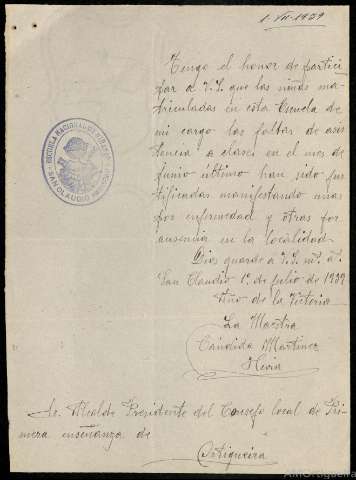 1-VII-1939
Tengo el honor de partici
par a V.S. que las niñas ma-
triculadas en esta Escuela de
mi cargo las faltas de asis
tencia a clase, en el mes de
Junio último han sido jus
tificadas manifestando unas
por enfermedad y otras por
ausencia en la localidad.
Dios guarde a V.S. m. a.
San Claudio 1º de Julio de 1939
Año de la Victoria
La Maestra
Cándida Martínez
Hevia
ESCUELA NACIONAL DE NIÑAS
SAN CLAUDIO
Sr. Alcalde Presidente del Consejo local de Pri-
mera enseñanza de
Ortigueira